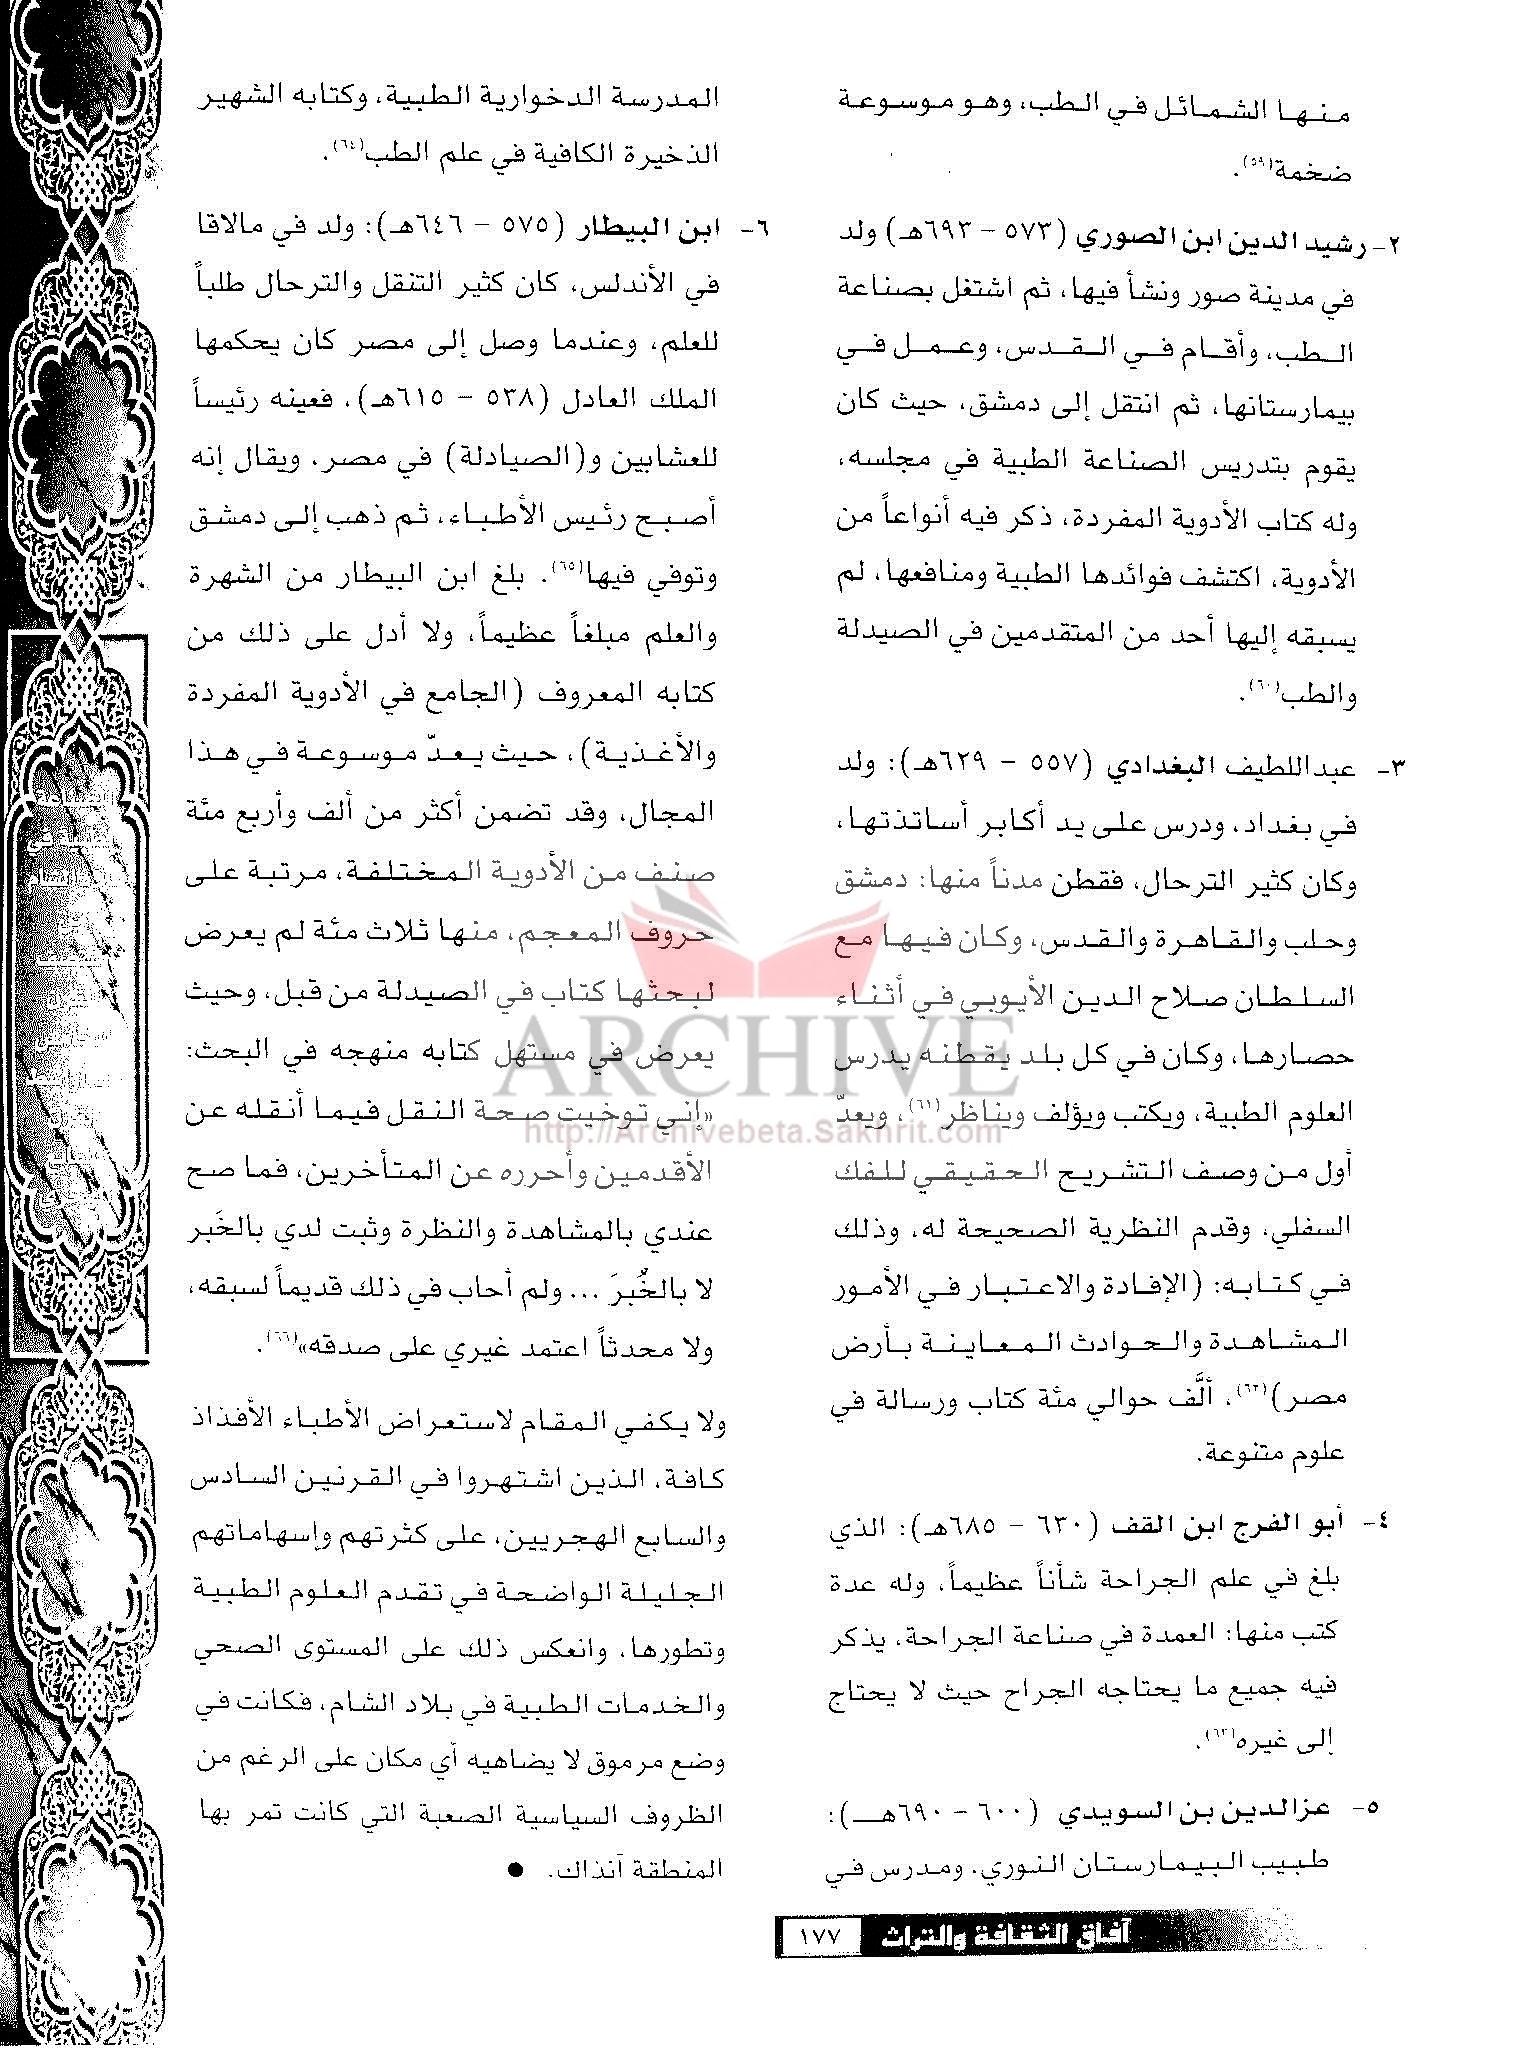 منها الشمائل في الطب، وهو موسوعة
ضخمة(٥٩).
٢- رشيد الدين ابن الصوري (٥٧٣ – ٦٩٣هـ) ولد
في مدينة صور ونشأ فيها، ثم اشتغل بصناعة
الطب، وأقام في القدس، وعمل في
بيمارستانها، ثم انتقل إلى دمشق، حيث كان
يقوم بتدريس الصناعة الطبية في مجلسه،
وله كتاب الأدوية المفردة، ذكر فيه أنواعاً من
الأدوية، اكتشف فوائدها الطبية ومنافعها، لم
يسبقه إليها أحد من المتقدمين في الصيدلة
والطب(٦٠).
٣- عبداللطيف البغدادي (٥٥٧ – ٦٢٩هـ): ولد
في بغداد، ودرس على يد أكابر أساتذتها،
وكان كثير الترحال، فقطن مدناً منها: دمشق
وحلب والقاهرة والقدس، وكان فيها مع
السلطان صلاح الدين الأيوبي في أثناء
حصارها، وكان في كل بلد يقطنه يدرس
العلوم الطبية، ويكتب ويؤلف ويناظر(٦١)، ويعدّ
أول من وصف التشريح الحقيقي للفك
السفلي، وقدم النظرية الصحيحة له، وذلك
في كتابه: (الإفادة والاعتبار في الأمور
المشاهدة والحوادث المعاينة بأرض
مصر)(٦٢)، ألَّف حوالي مئة كتاب ورسالة في
علوم متنوعة.
٤- أبو الفرج ابن القف (٦٣٠ – ٦٨٥هـ): الذي
بلغ في علم الجراحة شأناً عظيماً، وله عدة
كتب منها: العمدة في صناعة الجراحة، يذكر
فيه جميع ما يحتاجه الجراح حيث لا يحتاج
إلى غيره(٦٣).
٥- عزالدين بن السويدي (٦٠٠ – ٦٩٠هـ):
طبيب البيمارستان النوري. ومدرس في
المدرسة الدخوارية الطبية، وكتابه الشهير
الذخيرة الكافية في علم الطب(٦٤).
٦- ابن البيطار (٥٧٥ – ٦٤٦هـ): ولد في مالاقا
في الأندلس، كان كثير التنقل والترحال طلباً
للعلم، وعندما وصل إلى مصر كان يحكمها
الملك العادل (٥٣٨ – ٦١٥هـ)، فعينه رئيساً
للعشابين و(الصيادلة) في مصر، ويقال إنه
أصبح رئيس الأطباء، ثم ذهب إلى دمشق
وتوفي فيها(٦٥). بلغ ابن البيطار من الشهرة
والعلم مبلغاً عظيماً، ولا أدل على ذلك من
كتابه المعروف (الجامع في الأدوية المفردة
والأغذية)، حيث يعدّ موسوعة في هذا
المجال، وقد تضمن أكثر من ألف وأربع مئة
صنف من الأدوية المختلفة، مرتبة على
حروف المعجم، منها ثلاث مئة لم يعرض
لبحثها كتاب في الصيدلة من قبل، وحيث
يعرض في مستهل كتابه منهجه في البحث:
«إني توخيت صحة النقل فيما أنقله عن
الأقدمين وأحرره عن المتأخرين، فما صح
عندي بالمشاهدة والنظرة وثبت لدي بالخَبر
لا بالخُبرَ ... ولم أحاب في ذلك قديماً لسبقه،
ولا محدثاً اعتمد غيري على صدقه»(٦٦).
ولا يكفي المقام لاستعراض الأطباء الأفذاذ
كافة، الذين اشتهروا في القرنين السادس
والسابع الهجريين، على كثرتهم وإسهاماتهم
الجليلة الواضحة في تقدم العلوم الطبية
وتطورها، وانعكس ذلك على المستوى الصحي
والخدمات الطبية في بلاد الشام، فكانت في
وضع مرموق لا يضاهيه أي مكان على الرغم من
الظروف السياسية الصعبة التي كانت تمر بها
المنطقة آنذاك. ●
ARCHIVE
http://Archivebeta.Sakhrit.com
آفاق الثقافة والتراث ١٧٧